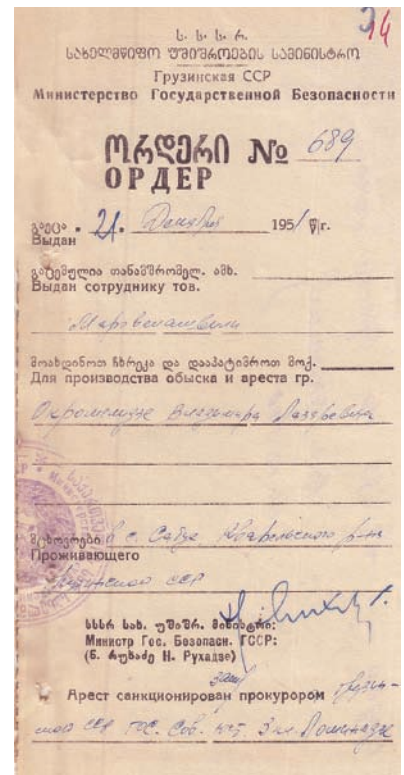 14
ს. ს. ს. რ.
სახელმწიფო უშიშროების სამინისტრო
Грузинская ССР
Министерство Государственной Безопасности
ორდერი № 689
ОРДЕР
გაეცა „ 21 „ Декабря 1951 წ/г.
Выдан
გაცემულია თანამშრომელ. ამხ.
Выдан сотруднику тов.
მოახდინოთ ჩხრეკა და დააპატიმროთ მოქ.
Для производства обыска и ареста гр.
Владимира Лазаревича
მცხოვრები в с. Кварельского р-на
Проживающего
Грузинской ССР
სსსრ სახ. უშიშრ. მინისტრი:
Министр Гос. Безопасн. ГССР:
(ნ. რუხაძე Н. Рухадзе)
Арест санкционирован прокурором Грузин-
ской ССР Гос. Сов. Юст. 3 кл. Ломинадзе